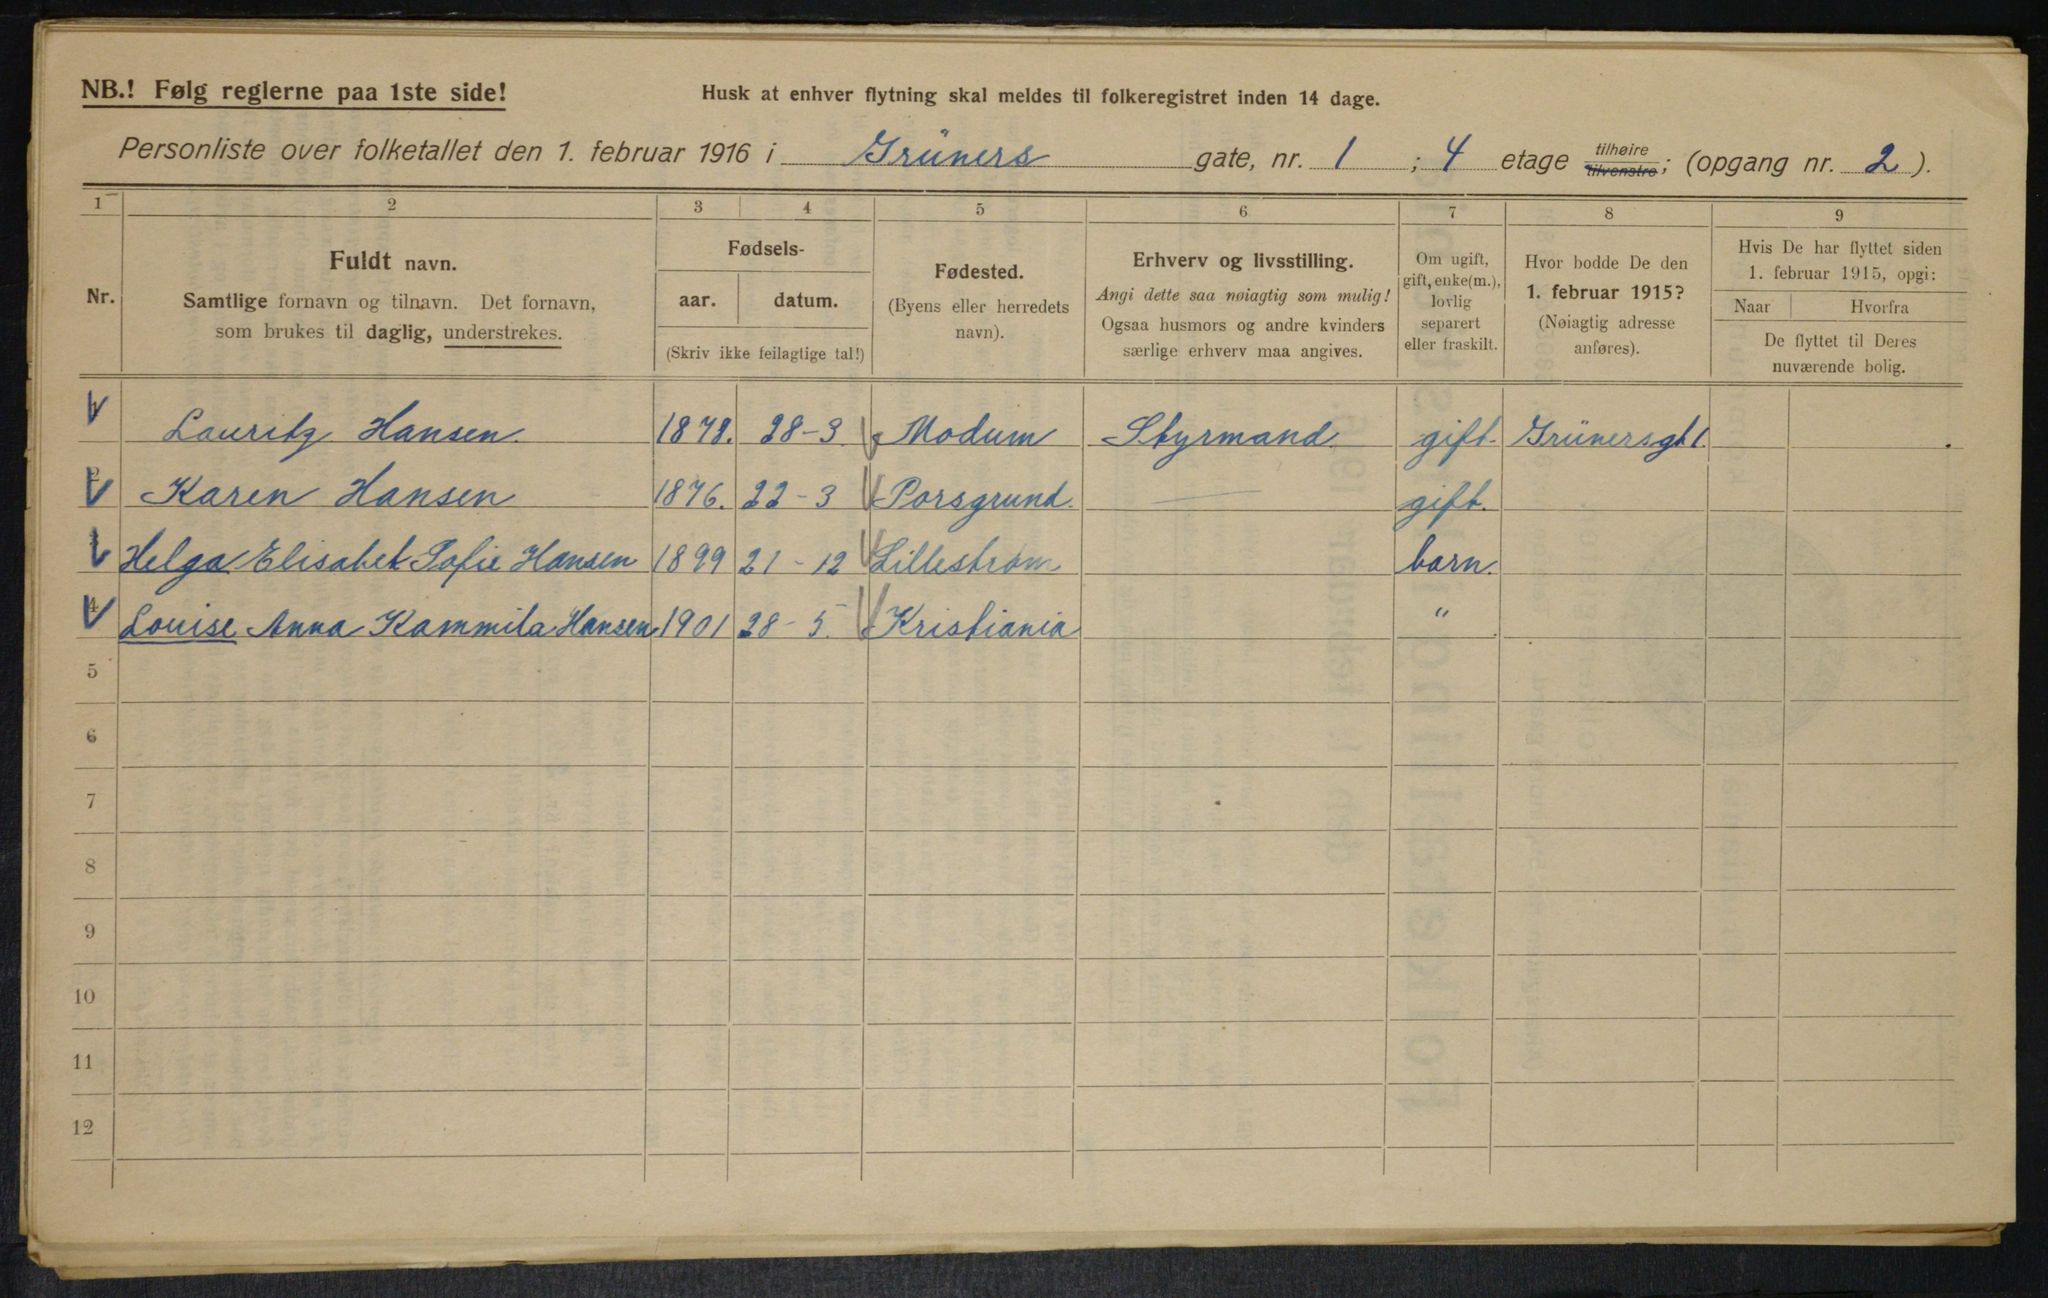 NB.! Følg reglerne paa 1ste side!
Husk at enhver flytning skal meldes til folkeregistret inden 14 dage.
Personliste over folketallet den 1. februar 1916 i Grüners gate, nr. 1 ; 4 etage tilhøire tilvenstre; (opgang nr. 2 ).
1 2 3 4 5 6 7 8 9
Nr.
Fuldt navn.
Samtlige fornavn og tilnavn. Det fornavn,
som brukes til daglig, understrekes.
Fødsels-
aar. datum.
(Skriv ikke feilagtige tal!)
Fødested.
(Byens eller herredets
navn).
Erhverv og livsstilling.
Angi dette saa nøiagtig som mulig!
Ogsaa husmors og andre kvinders
særlige erhverv maa angives.
Om ugift,
gift, enke(m.),
lovlig
separert
eller fraskilt.
Hvor bodde De den
1. februar 1915?
(Nøiagtig adresse
anføres).
Hvis De har flyttet siden
1. februar 1915, opgi:
Naar Hvorfra
De flyttet til Deres
nuværende bolig.
1 Lauritz Hansen. 1878. 28-3. Modum Styrmand. gift. Grünersgt 1.
2 Karen Hansen 1876. 22-3 Porsgrund. — gift.
3 Helga Elisabet Sofie Hansen 1899 21-12 Lillestrøm barn.
4 Louise Anna Kammila Hansen 1901 28-5. Kristiania "
5
6
7
8
9
10
11
12